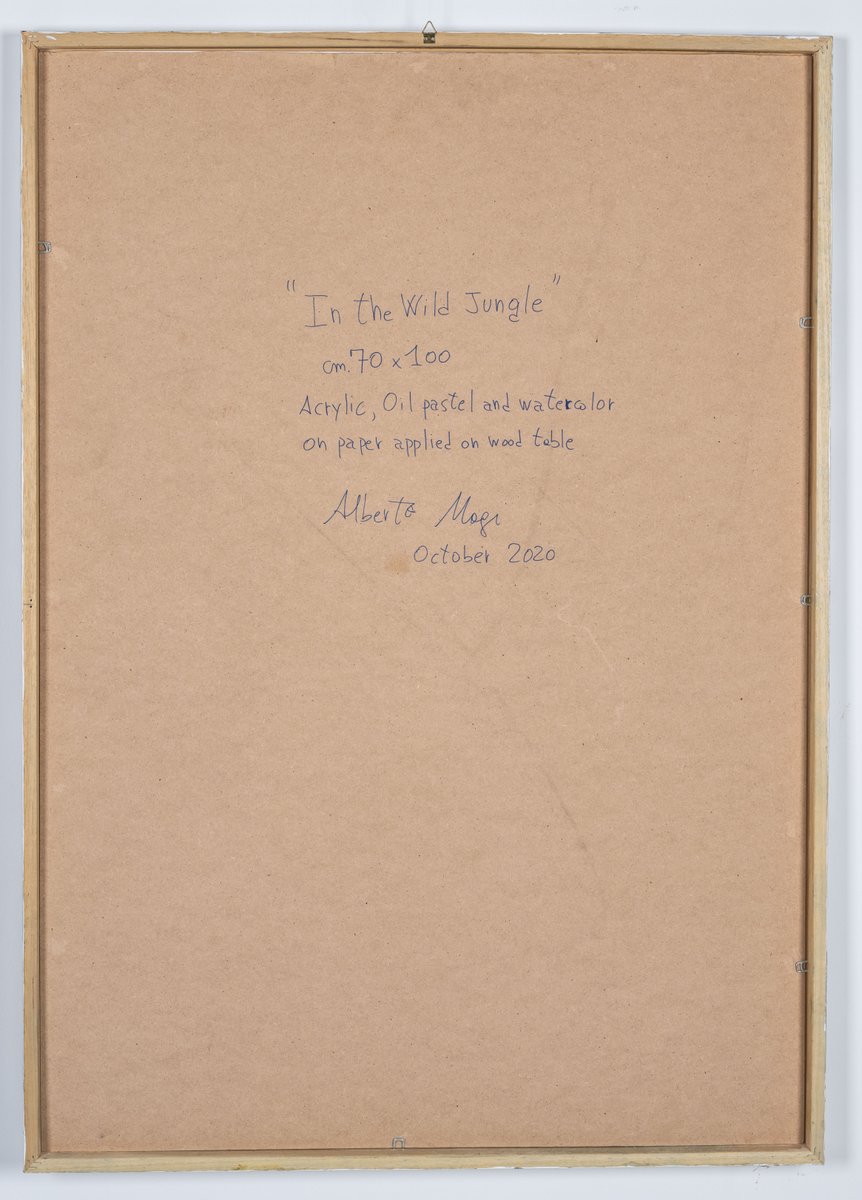 "In the Wild Jungle"
cm. 70 x 100
Acrylic, Oil pastel and watercolor
on paper applied on wood table
Alberto Magi
October 2020